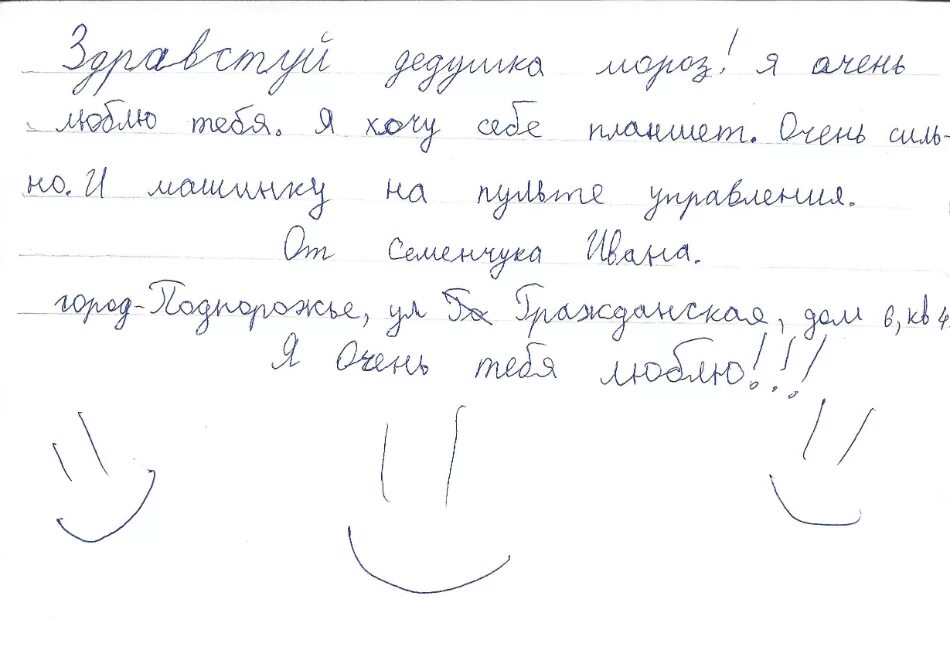 Здравстуй дедушка мороз! я очень
люблю тебя. Я хочу себе планшет. Очень силь-
но. И машинку на пульте управления.
От Семенчука Ивана.
город-Подпорожье, ул Гражданская, дом 6, кв 4
Я Очень тебя люблю!!!